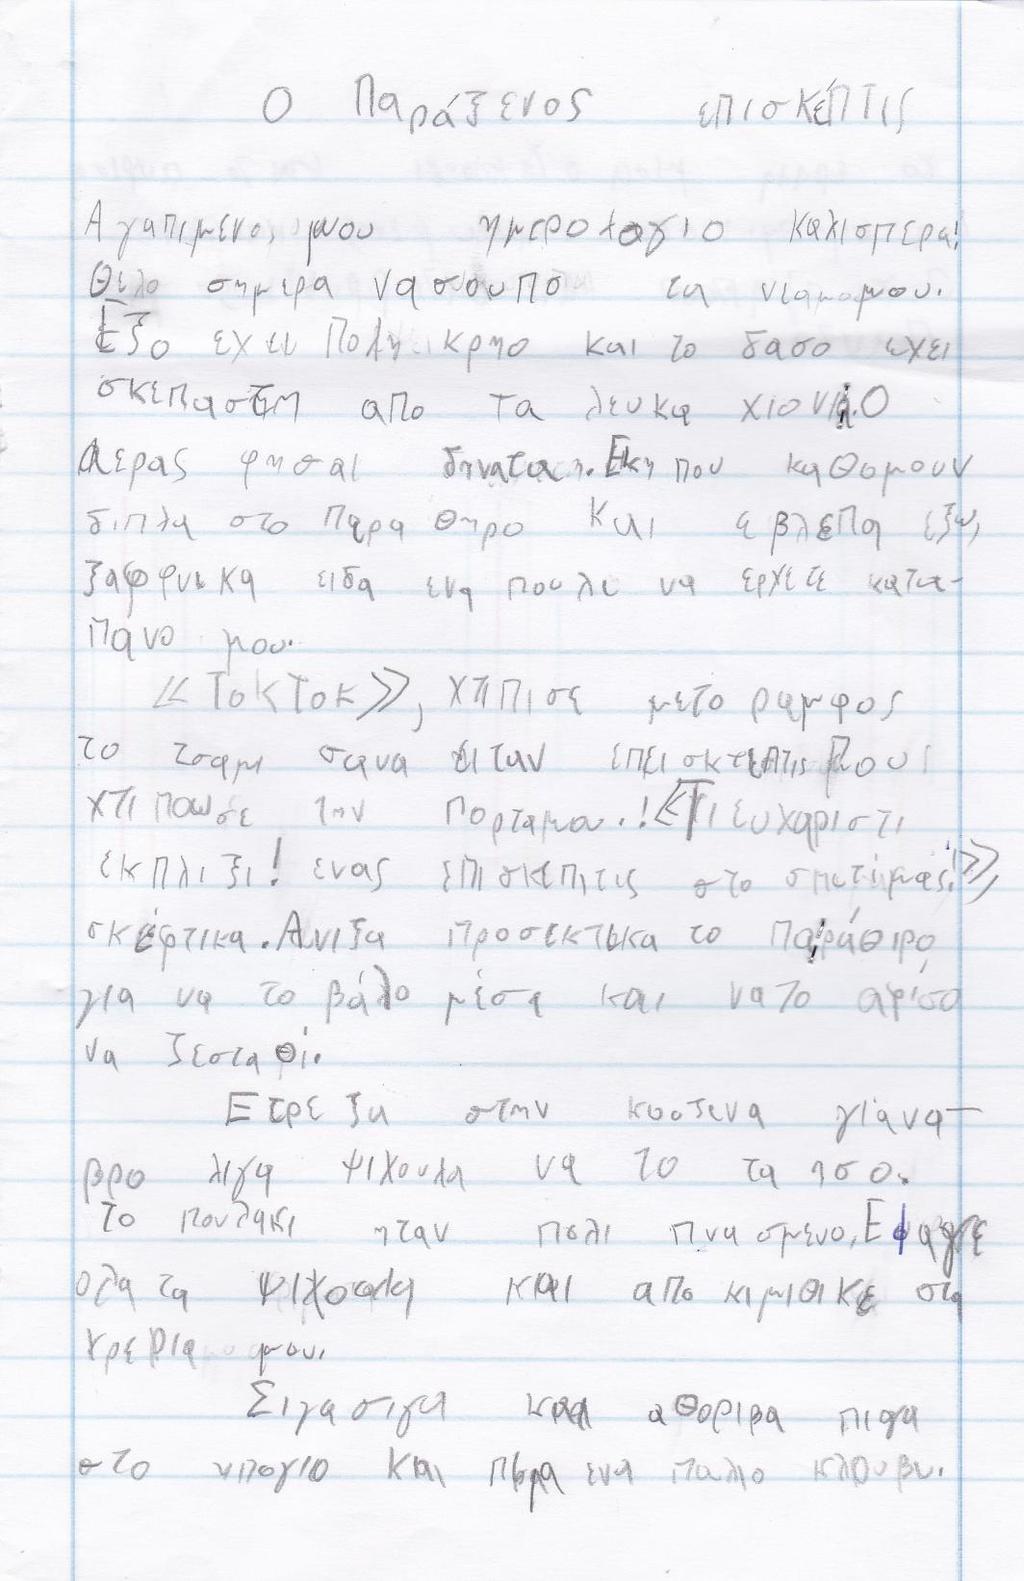 Ο Παράξενος επισκέπτις
Αγαπιμενο, μου ημερολογιο καλισπερα!
Θελο σημερα νασουπο τα νεαμομου.
Εξο εχει Πολη κρηο και το δασο εχει
σκεπαστι απο τα λευκα χιονιά.Ο
Αερας φησαι δηνατα. Εκη που καθομουν
διπλα στο παραθηρο και εβλεπα εξω,
ξαφφνικα ειδα ενα πουλι να ερχετε κατα-
πανο μου.
«ΤοκΤοκ», χτιπισε μετο ραμφος
το τσαμι σανα ειταν επεισκτεπτις που
χτιπουσε την πορταμου.! «Τι ευχαριστι
εκπλιξι! ενας επισκεπιτις στο σπιτιμας!»,
σκέφτικα. Ανιξα προσεκτικα το Παράθιρο,
για να το βάλο μέσα και νατο αφισο
να ζεσταθί.
Ετρεξα στην κουζενα γιανα-
βρο λιγα ψιχουλα να το ταησο.
το πουλακι ηταν πολι πινασμενο, Εφαγε
ολα τα ψιχουλα και αποκιμιθικε στα
χρεβια μου.
Σιγασιγα και αθοριβα πιγα
στο υπογιο και πιρα ενα παλιο κλουβι.